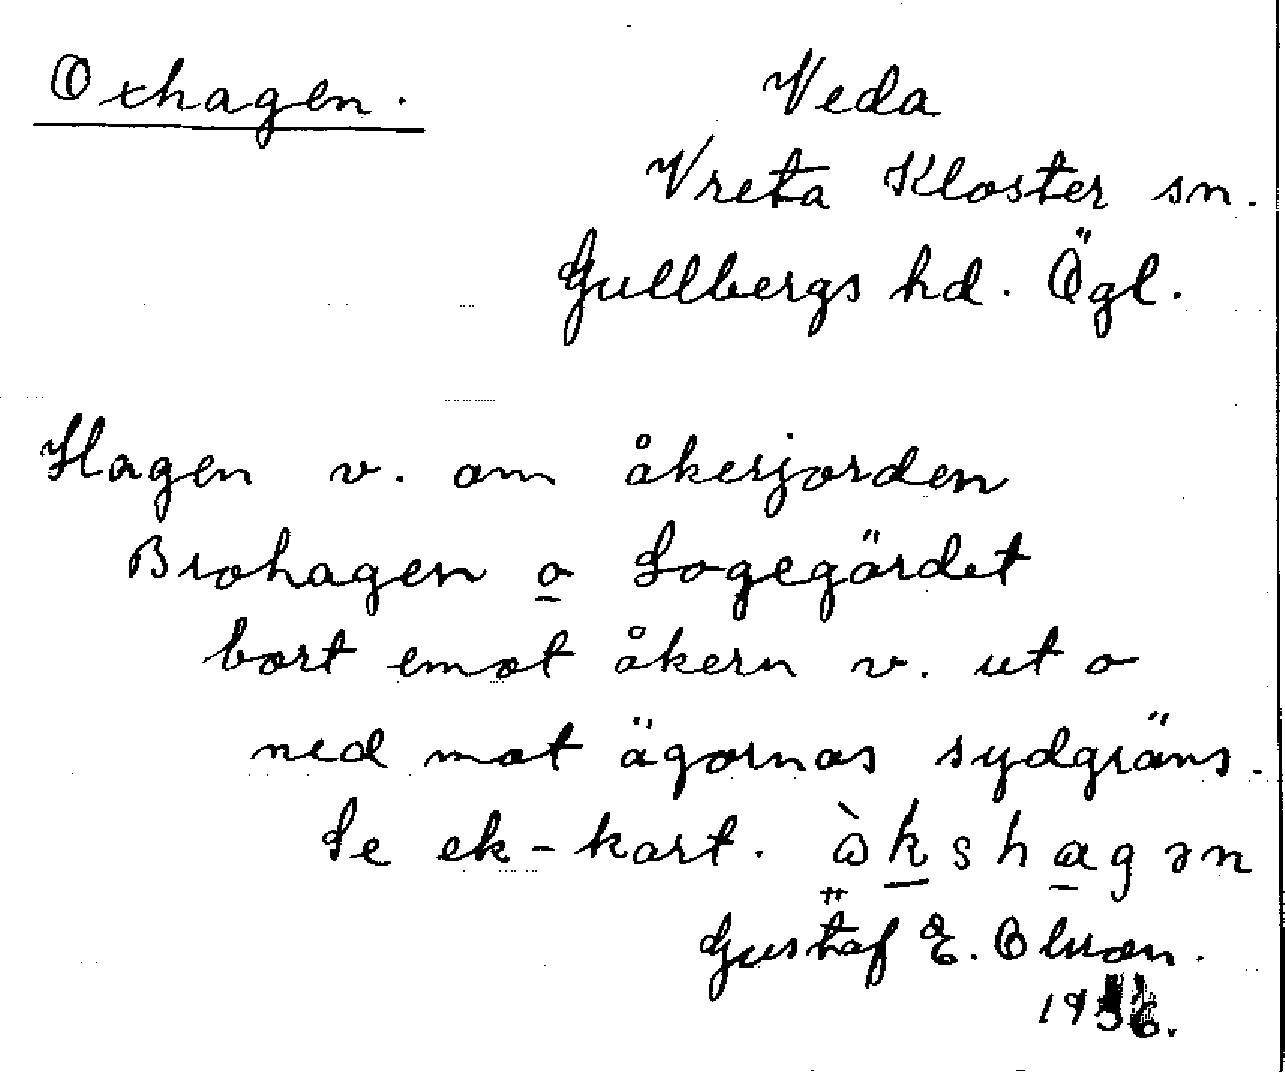 Oxhagen.
Veda
Vreta Kloster sn.
Gullbergs hd. Ögl.
Hagen v. om åkerjorden
Brohagen o Logegärdet
bort emot åkern v. ut o
ned mot ägornas sydgräns.
Se ek-kart. ὰkshagən
Gustaf E. Olsson.
1936.